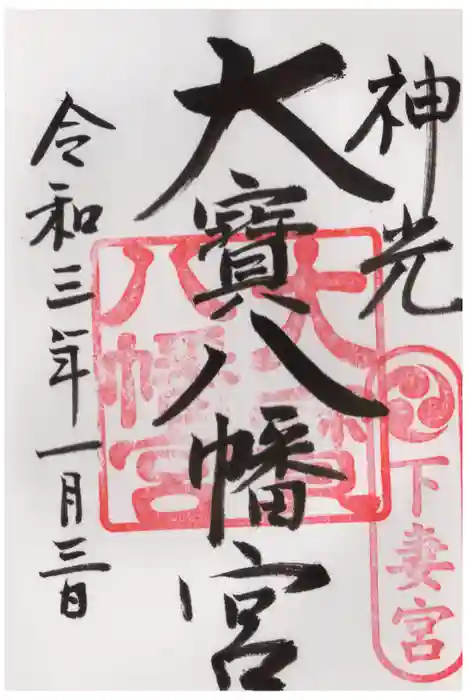 神光
下妻宮
大寳八幡宮
大寳八幡宮
令和三年一月三日